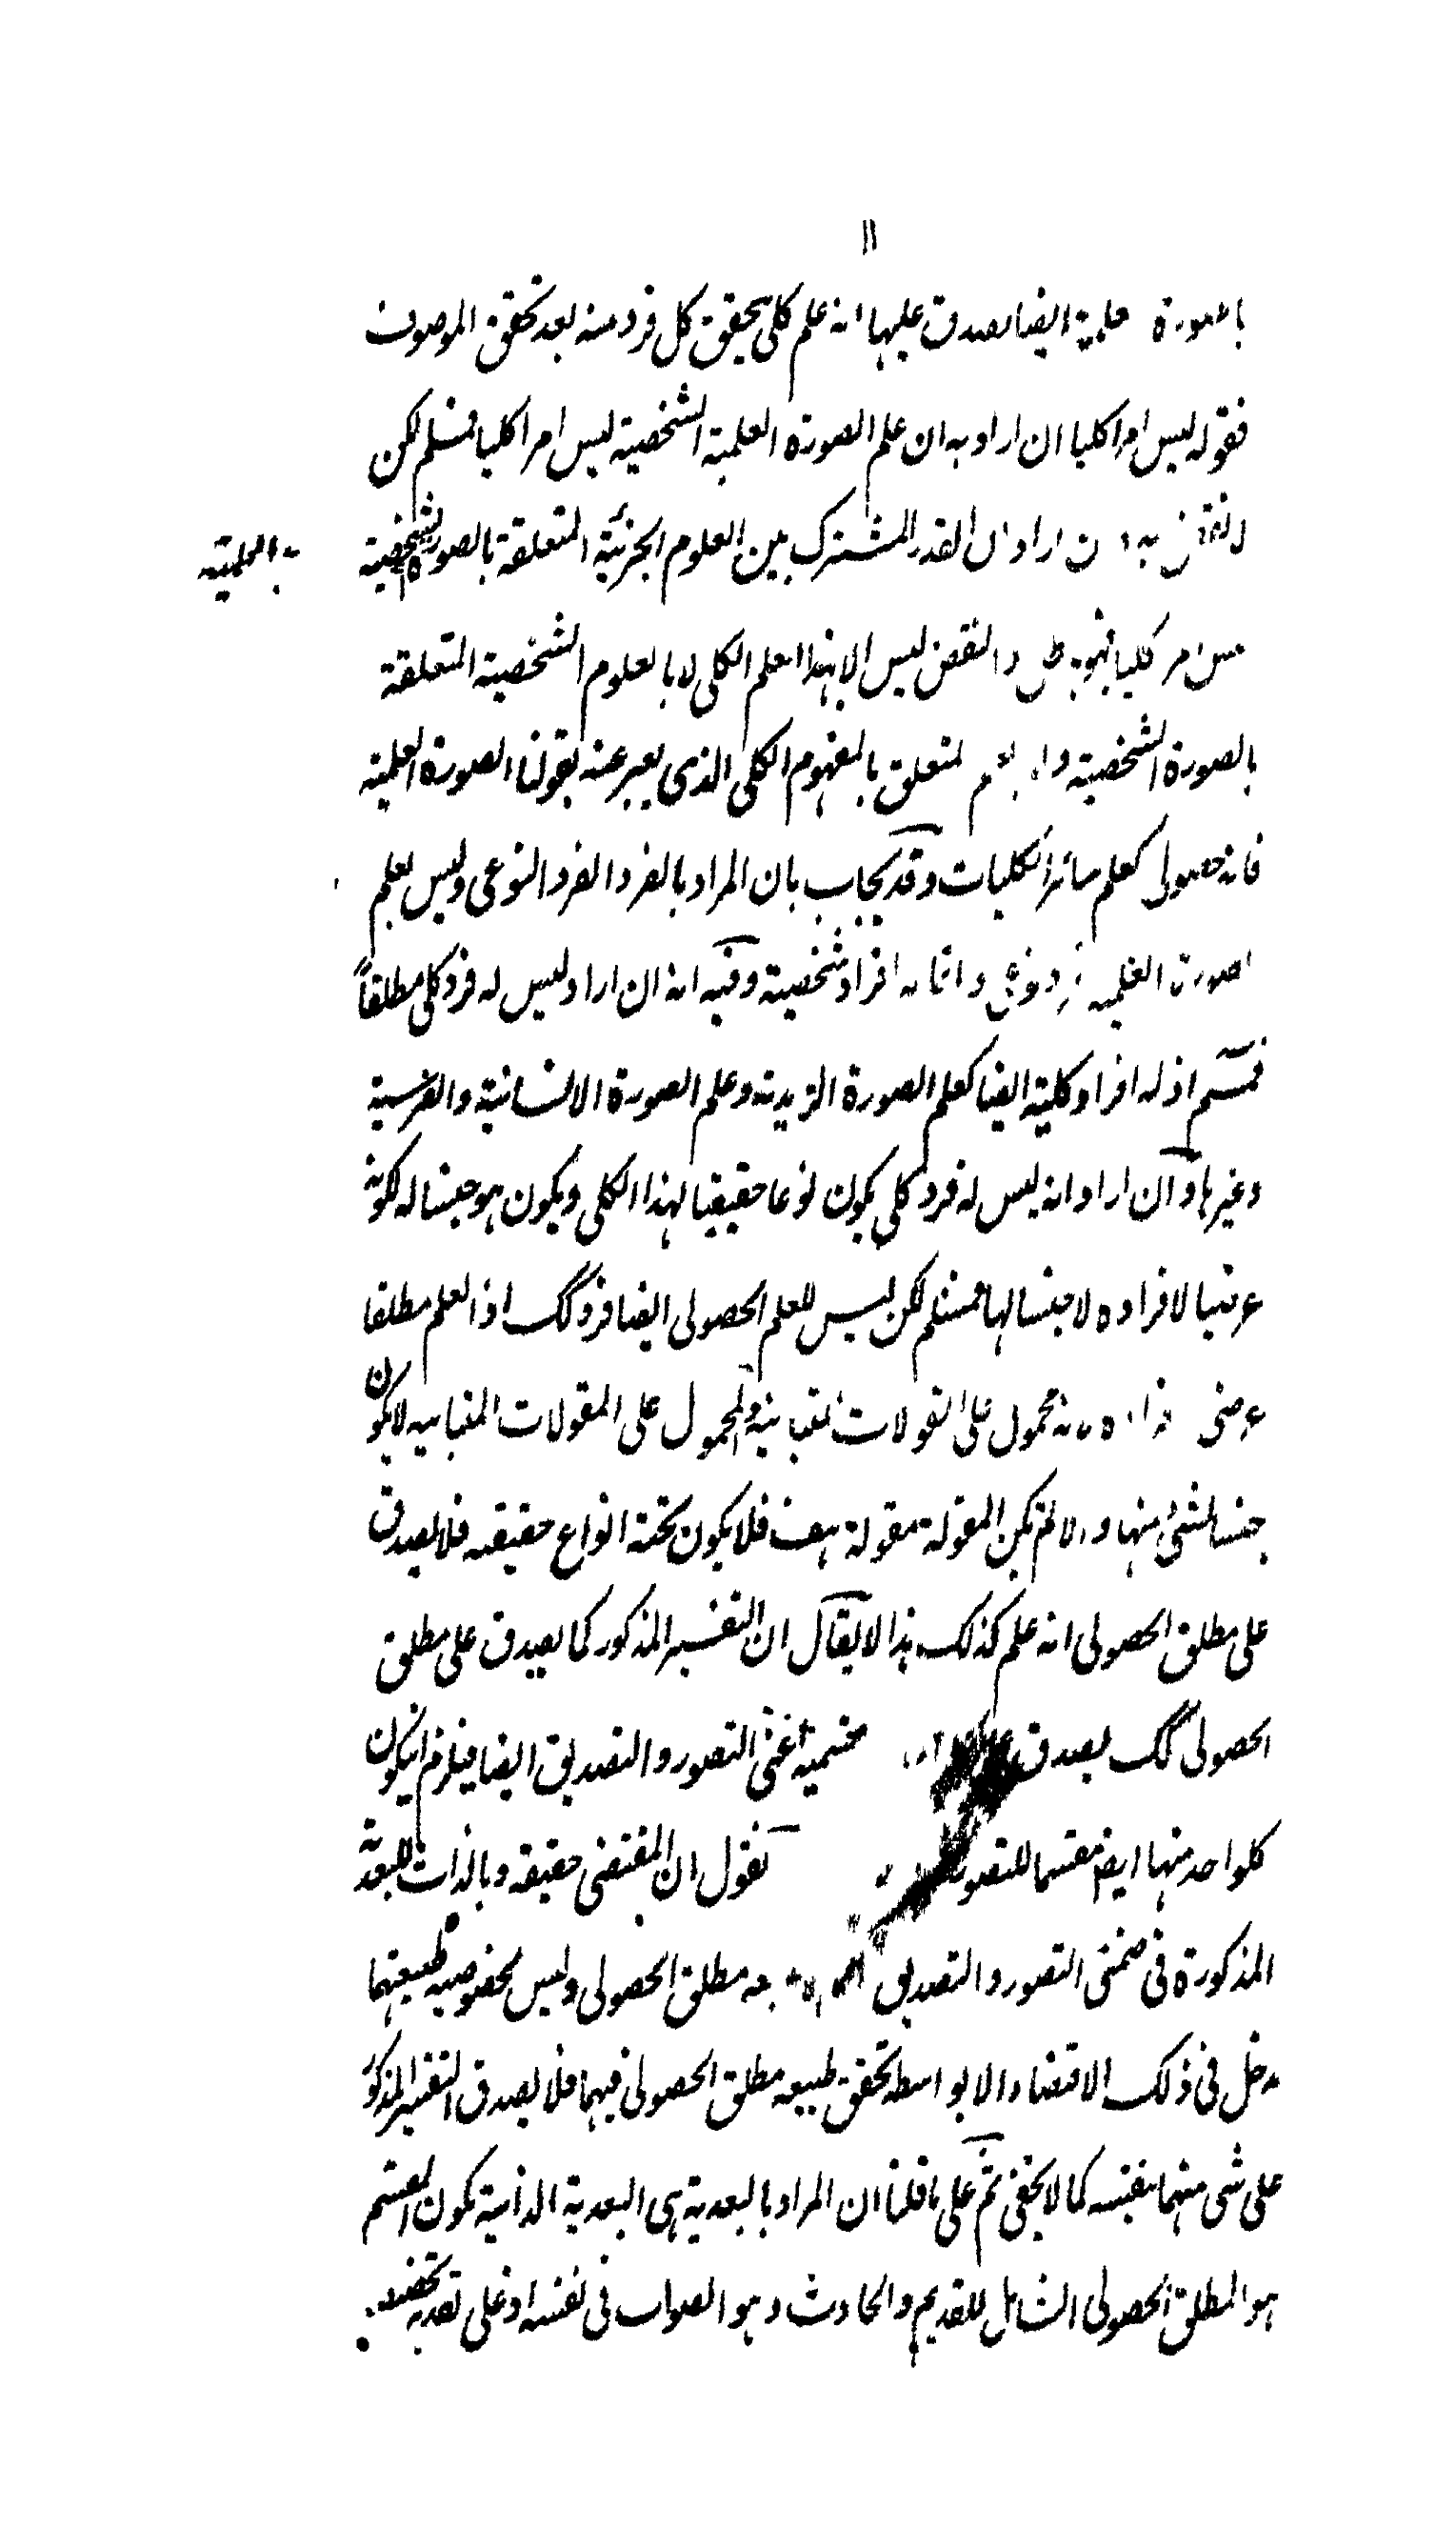 ١١
بالصورة علمية ايضا يصدق عليها انه علم كلى يتحقق كل فرد منه بعد تحقق الموصوف
فقوله ليس امرا كليا ان اراد به ان علم الصورة العلمية الشخصية ليس امرا كليا فمسلم لكن
لا نقض به ان اراد ان القدر المشترك بين العلوم الجزئية المتعلقة بالصورة الشخصية
العلمية
ليس امر كليا والنقض ليس الا بهذا العلم الكلى لا بالعلوم الشخصية المتعلقة
بالصورة الشخصية المتعلق بالمفهوم الكلى الذى يعبر عنه بقولنا الصورة العلمية
فانه حصولى كعلم سائر الكليات وقد يجاب بان المراد بالفرد الفرد النوعى وليس لعلم
الصورة العلمية فرد نوعى وانما له افراد شخصية وفيه انه ان اراد ليس له فرد كلى مطلقاً
فمسلم اذ له افراد كلية ايضا كعلم الصورة الزيدية وعلم الصورة الانسانية والفرسية
وغيرها وان اراد انه ليس له فرد كلى يكون نوعا حقيقيا لهذا الكلى ويكون هو جنسا له لكونه
عرضيا لافراده لا جنسا لها فمسلم لكن ليس للعلم الحصولى ايضا فرد كك اذ العلم مطلقا
عرضى محمول على المقولات المتباينة والمحمول على المقولات المتباينه لا يكون
جنسا لشئ منها والا لم تكن المقولة مقولة هف فلا يكون تحته انواع حقيقه فلا يصدق
على مطلق الحصولى انه علم كذلك هذا لا يقال ان التفسير المذكور كما يصدق على مطلق
الحصولى كك يصدق على قسميه اعنى التصور والتصديق ايضا فيلزم ان يكون
كلواحد منها ايض مقسما للتصور نقول ان المقتضى حقيقه وبالذات للبعدية
المذكورة فى ضمنى التصور والتصديق مطلق الحصولى وليس لخصوصيه طبيعتهما
دخل فى ذلك الاقتضاء الا بواسطه تحقق طبيعه مطلق الحصولى فيهما فلا يصدق التفسير المذكور
على شى منهما بنفسه كما لا يخفى ثم على ما قلنا ان المراد بالبعدية هى البعدية الذاتية يكون المقسم
هو المطلق الحصولى الشامل للقديم والحادث وهو الصواب فى نفسه اذ على تقدير تخصيصه